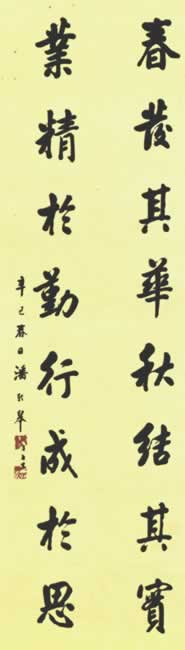 春發其華秋結其實
業精於勤行成於思
辛巳春日潘龄皋